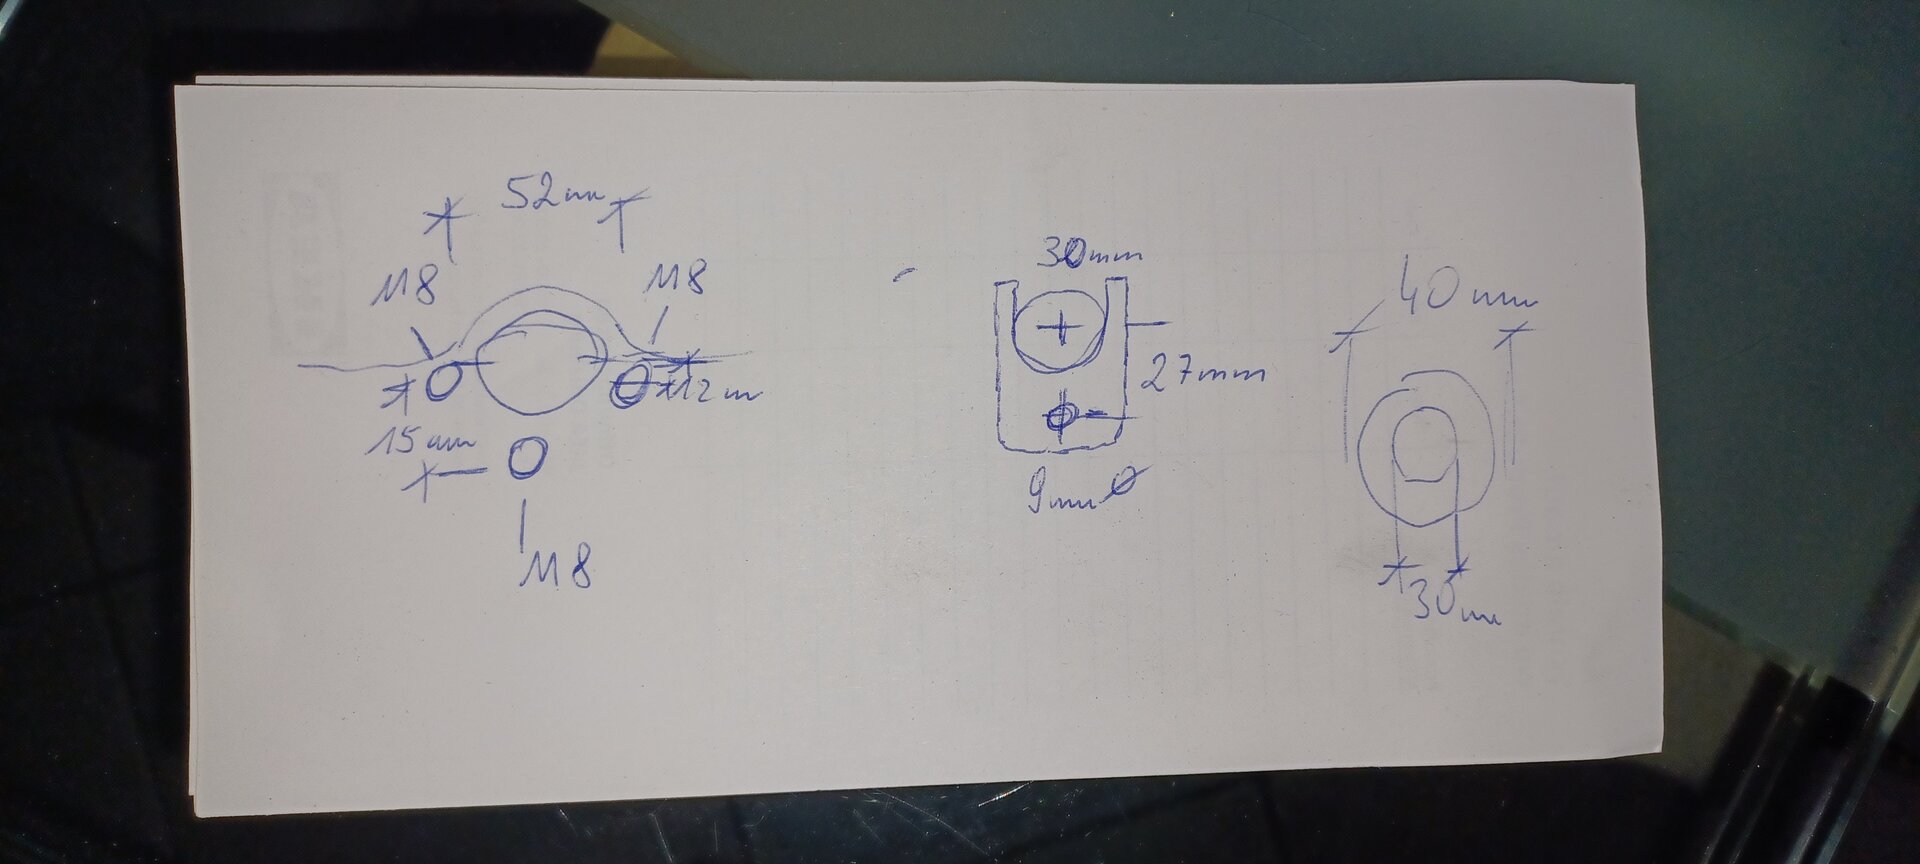 52mm
M8
M8
12m
15mm
M8
30mm
27mm
9mm Ø
40mm
30mm